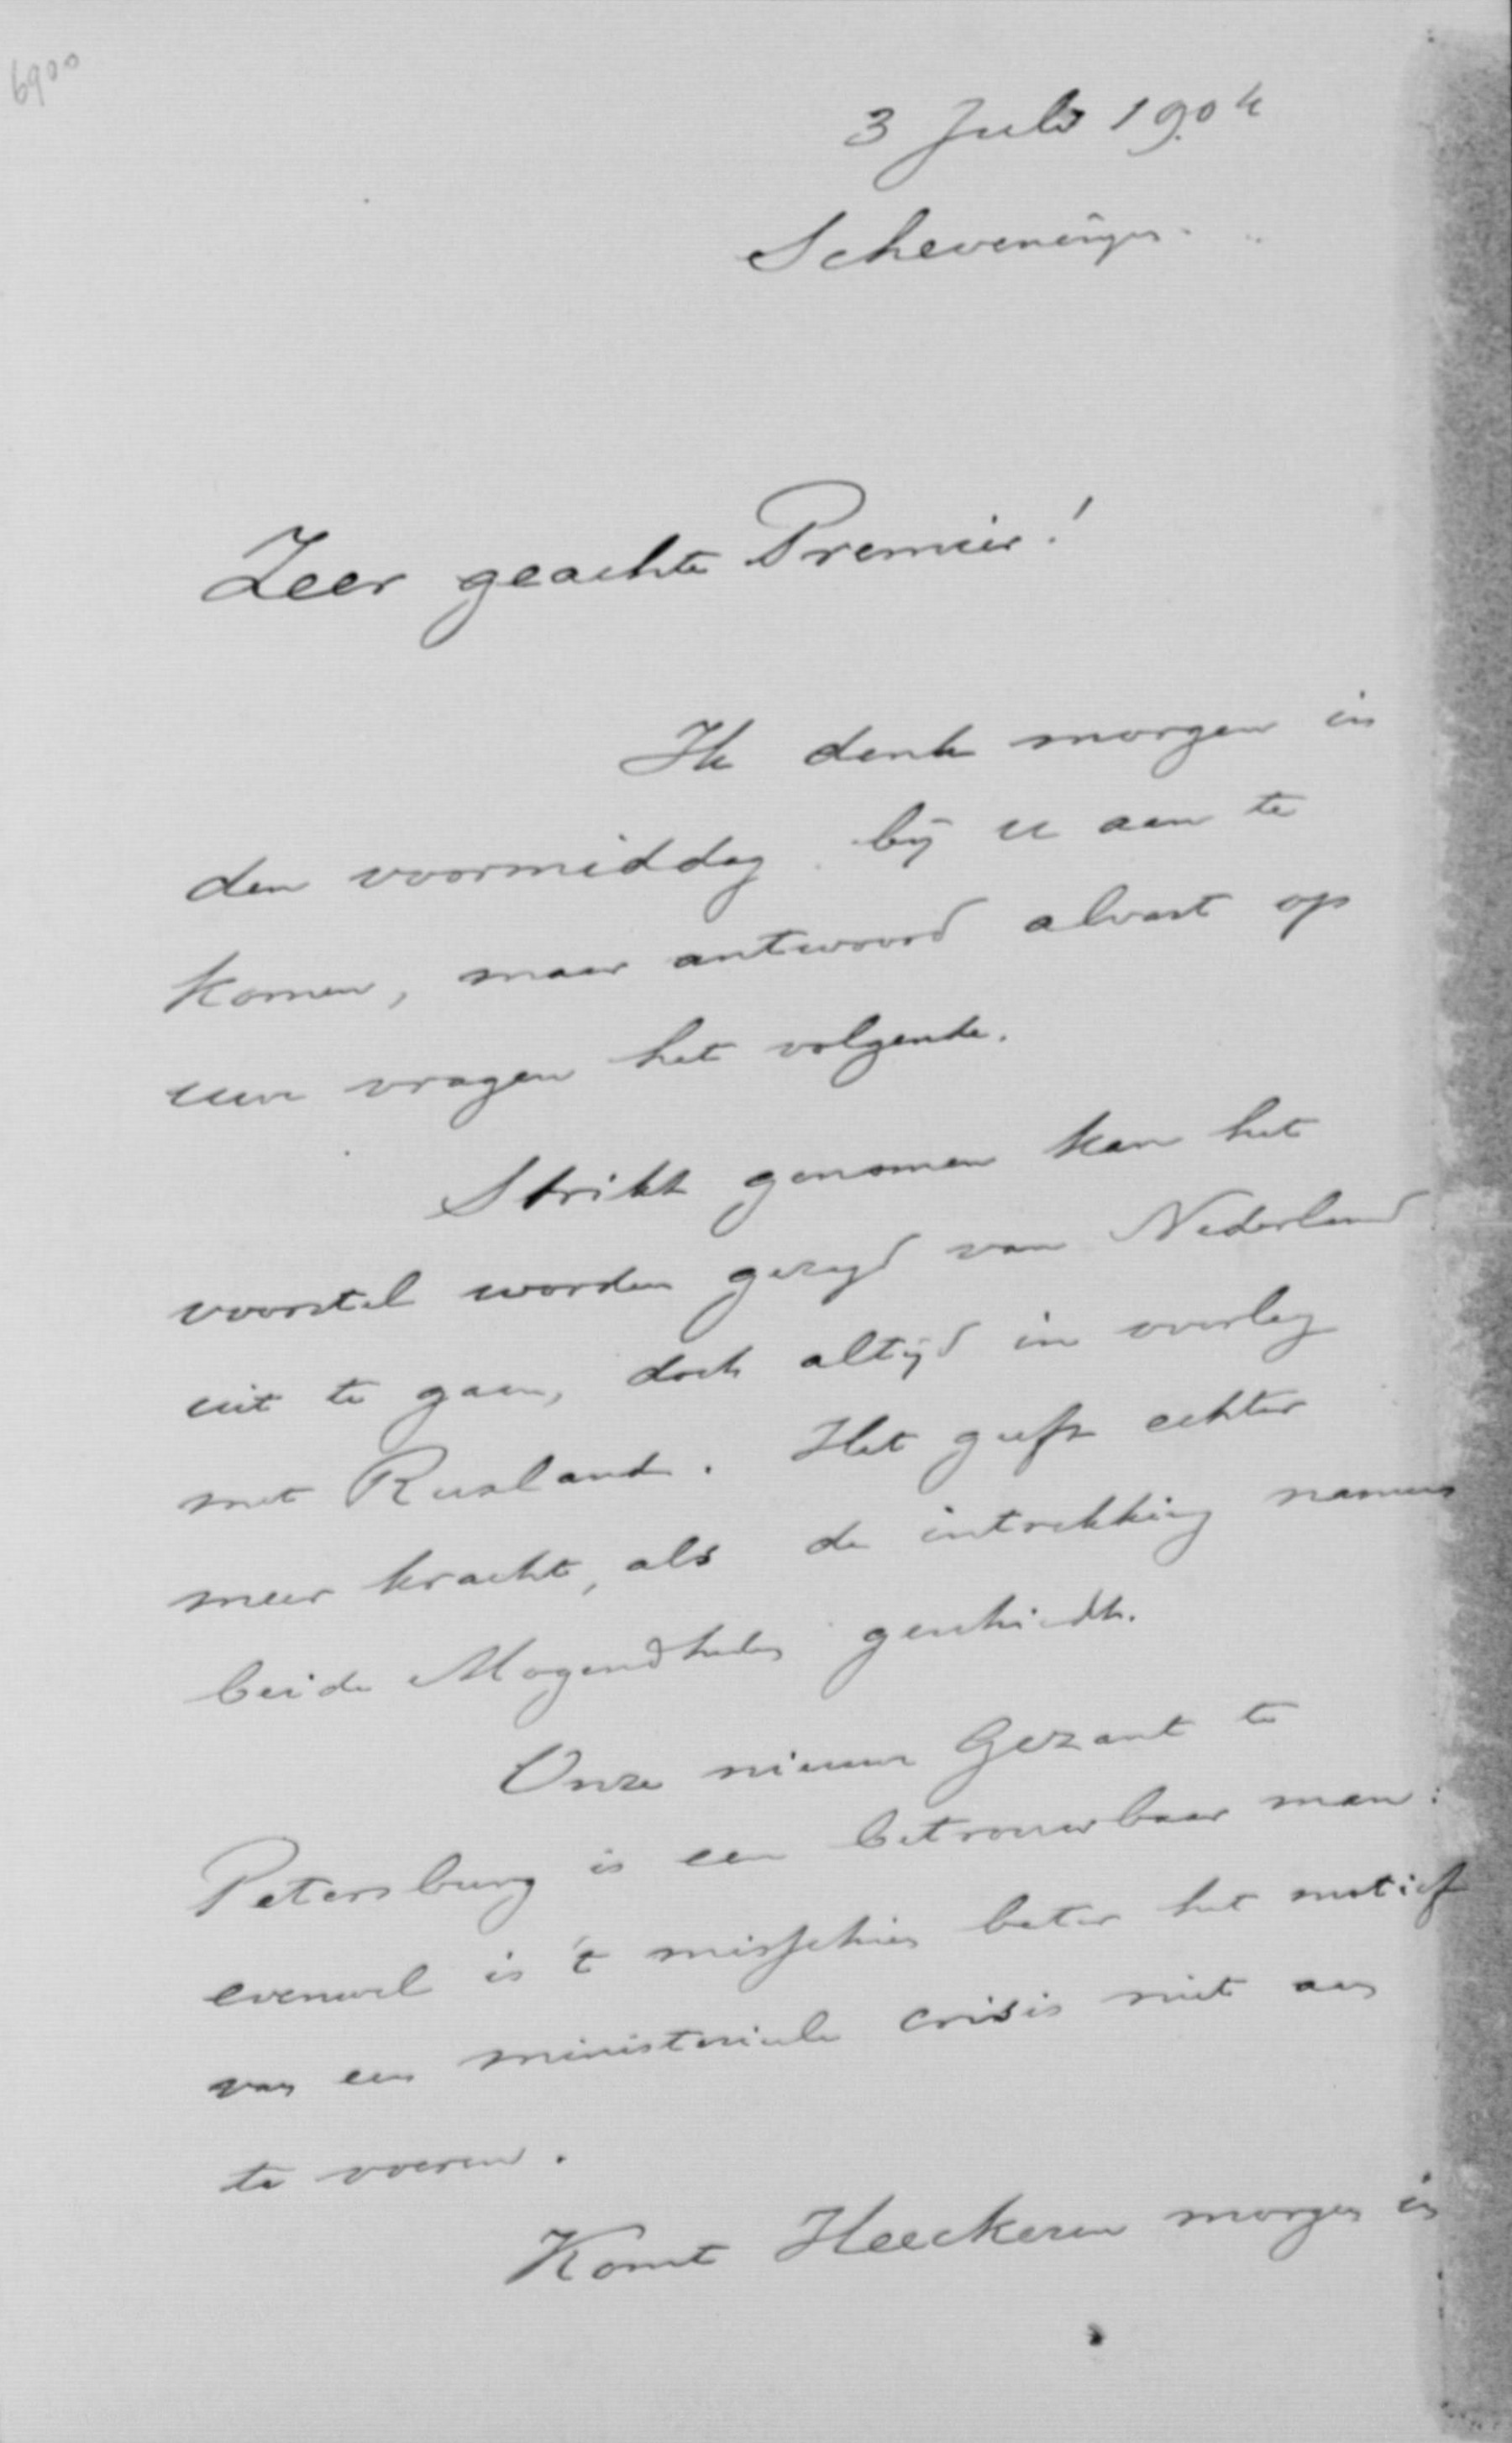 6900
3 Juli 1904
Scheveningen.
Zeer geachte Premier!
Ik denk morgen in
den voormiddag bij u aan te
komen, maar antwoord alvast op
uwe vragen het volgende.
Strikt genomen kan het
voorstel worden gezegd van Nederland
uit te gaan, doch altijd in overleg
met Rusland. Het geeft echter
meer kracht, als de intrekking namens
beide Mogendheden geschiedt.
Onze nieuwe Gezant te
Petersburg is een betrouwbaar man:
evenwel is 't misschien beter het motief
van een ministeriele crisis niet aan
te voeren.
Komt Heeckeren morgen in